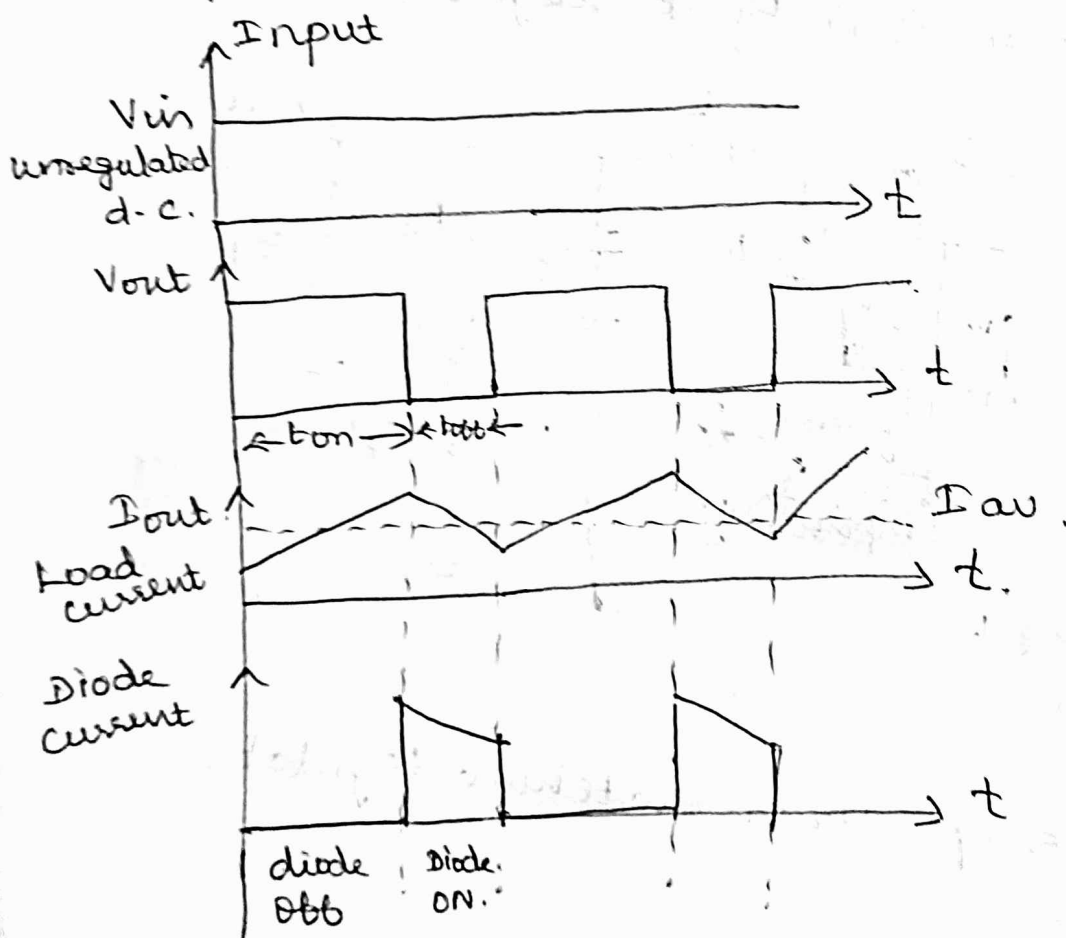 Input
Vin
unregulated
d-c.
t
Vout
t
ton
toff
Iout
Iav.
Load
current
t.
Diode
current
t
diode
off
Diode.
ON.